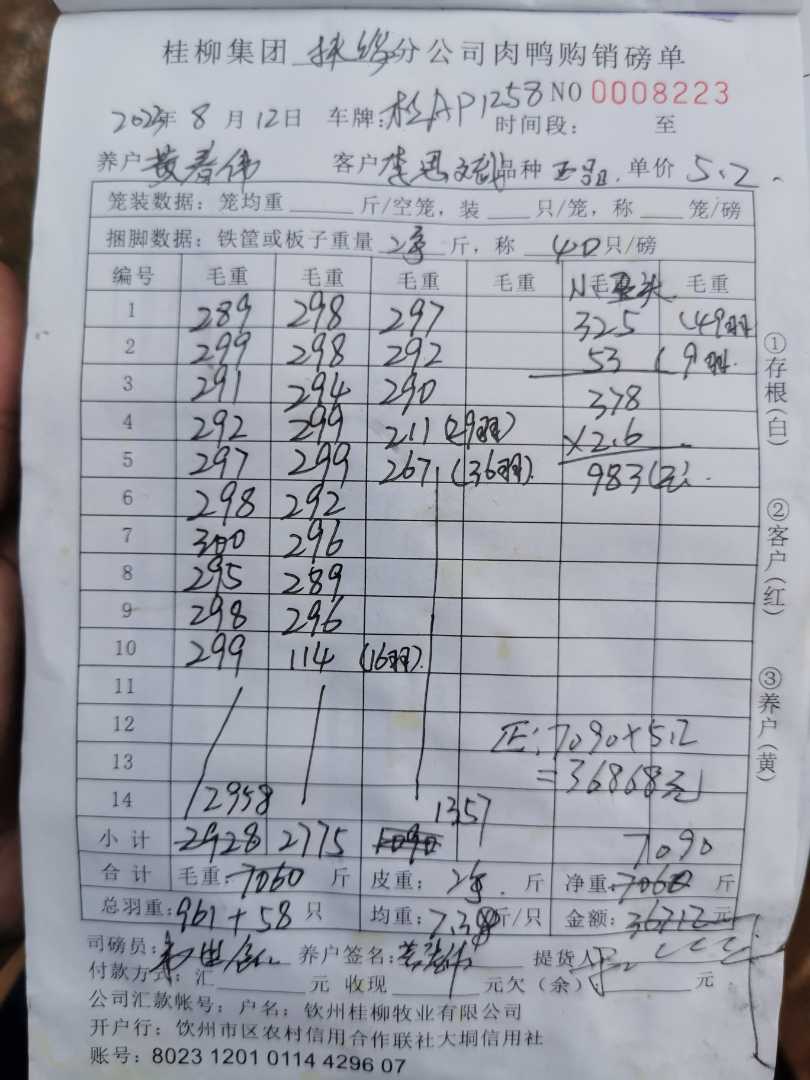 桂柳集团 分公司肉鸭购销磅单
NO 0008223
2023年 8 月 12日 车牌:桂AP1258 时间段: 至
养户 黄春伟 客户 李思 品种 单价 5.2
笼装数据:笼均重 斤/空笼,装 只/笼,称 笼/磅
捆脚数据:铁筐或板子重量 斤,称 40 只/磅
编号 毛重 毛重 毛重 毛重 毛重 毛重
1 289 298 297 325 (49羽
2 299 298 292 53 (9羽.
3 291 294 290 378
4 292 299 211 (29羽) ×2.6
5 297 299 267 (36羽). 983(元).
6 298 292
7 300 296
8 295 289
9 298 296
10 299 114 (16羽).
11
12 正:7090×5.2
13 =36868元
14 2958 1357
小计 2928 2775 7090
合计 毛重:7060 斤 皮重: 斤 净重:7060 斤
总羽重:961+58 只 均重:7.38斤/只 金额:36712元
司磅员: 养户签名:黄春伟 提货人:
付款方式:汇 元 收现 元欠(余) 元
公司汇款帐号:户名:钦州桂柳牧业有限公司
开户行:饮州市区农村信用合作联社大垌信用社
账号:8023 1201 0114 4296 07
①存根(白)
②客户(红)
③养户(黄)